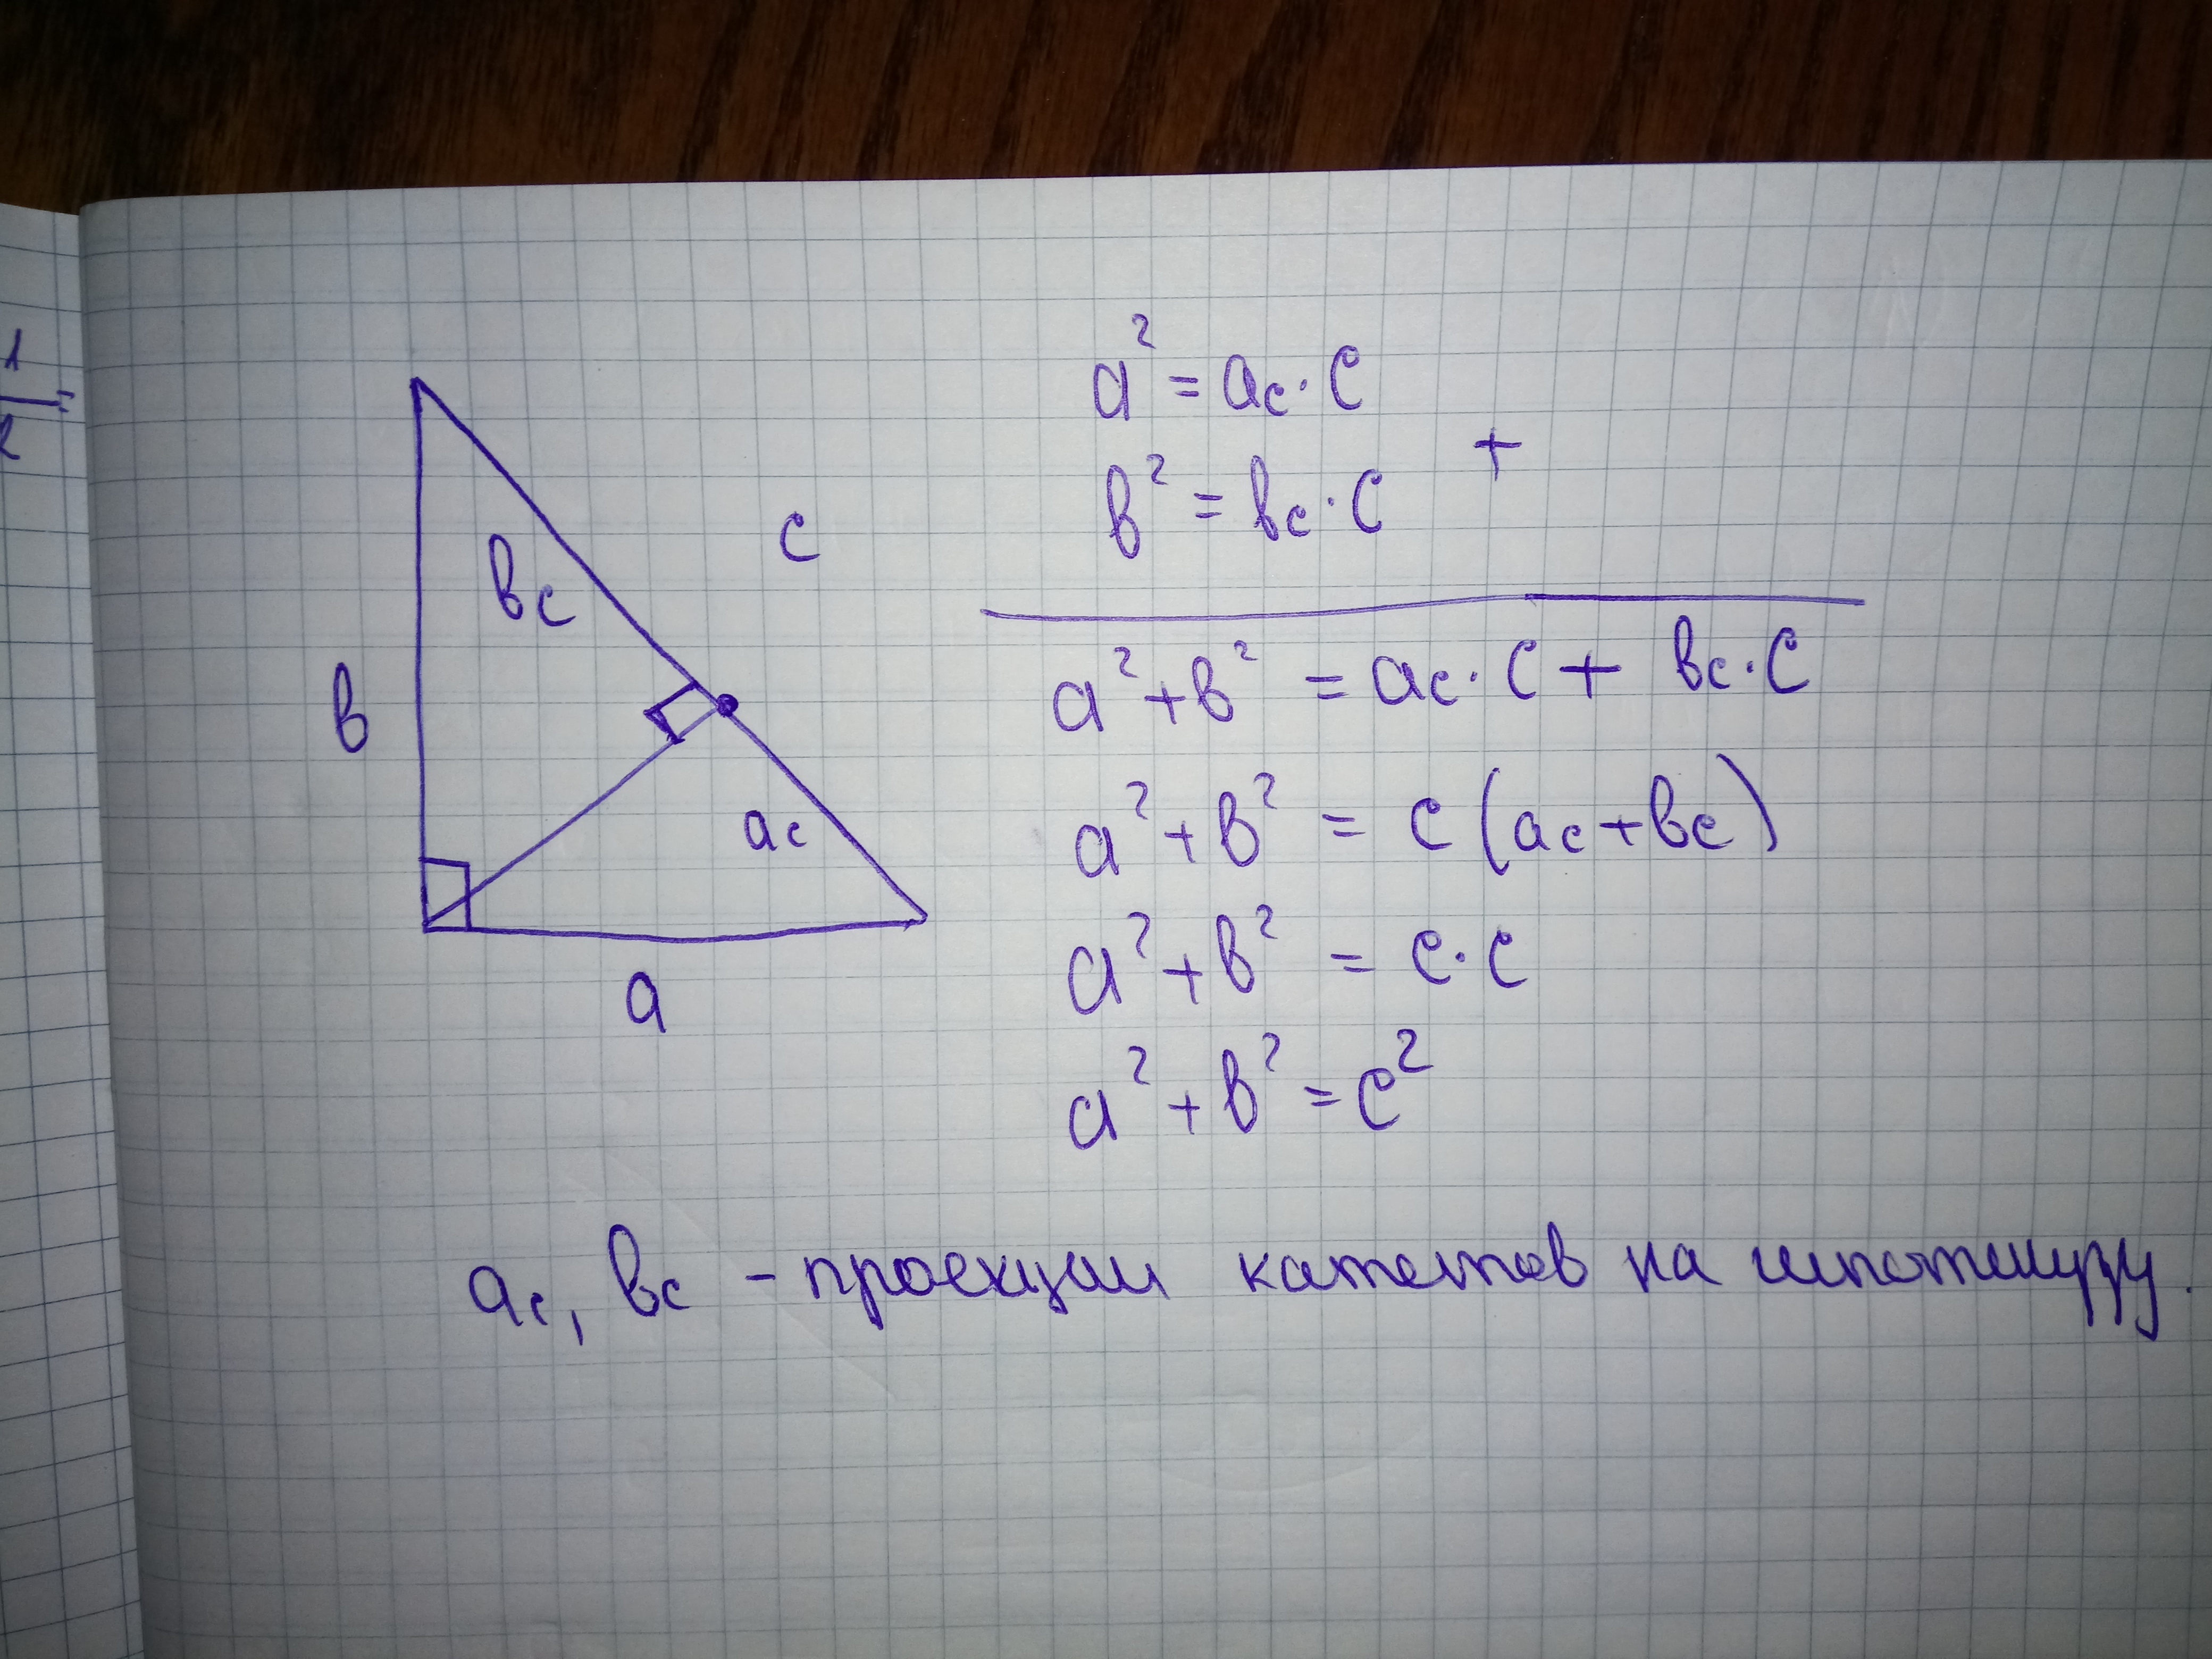 1
2 =
a² = ac · c
b² = bc · c
+
a² + b² = ac · c + bc · c
a² + b² = c (ac + bc)
a² + b² = c · c
a² + b² = c²
c
bc
b
ac
a
ac, bc - проекции катетов на гипотенузу.